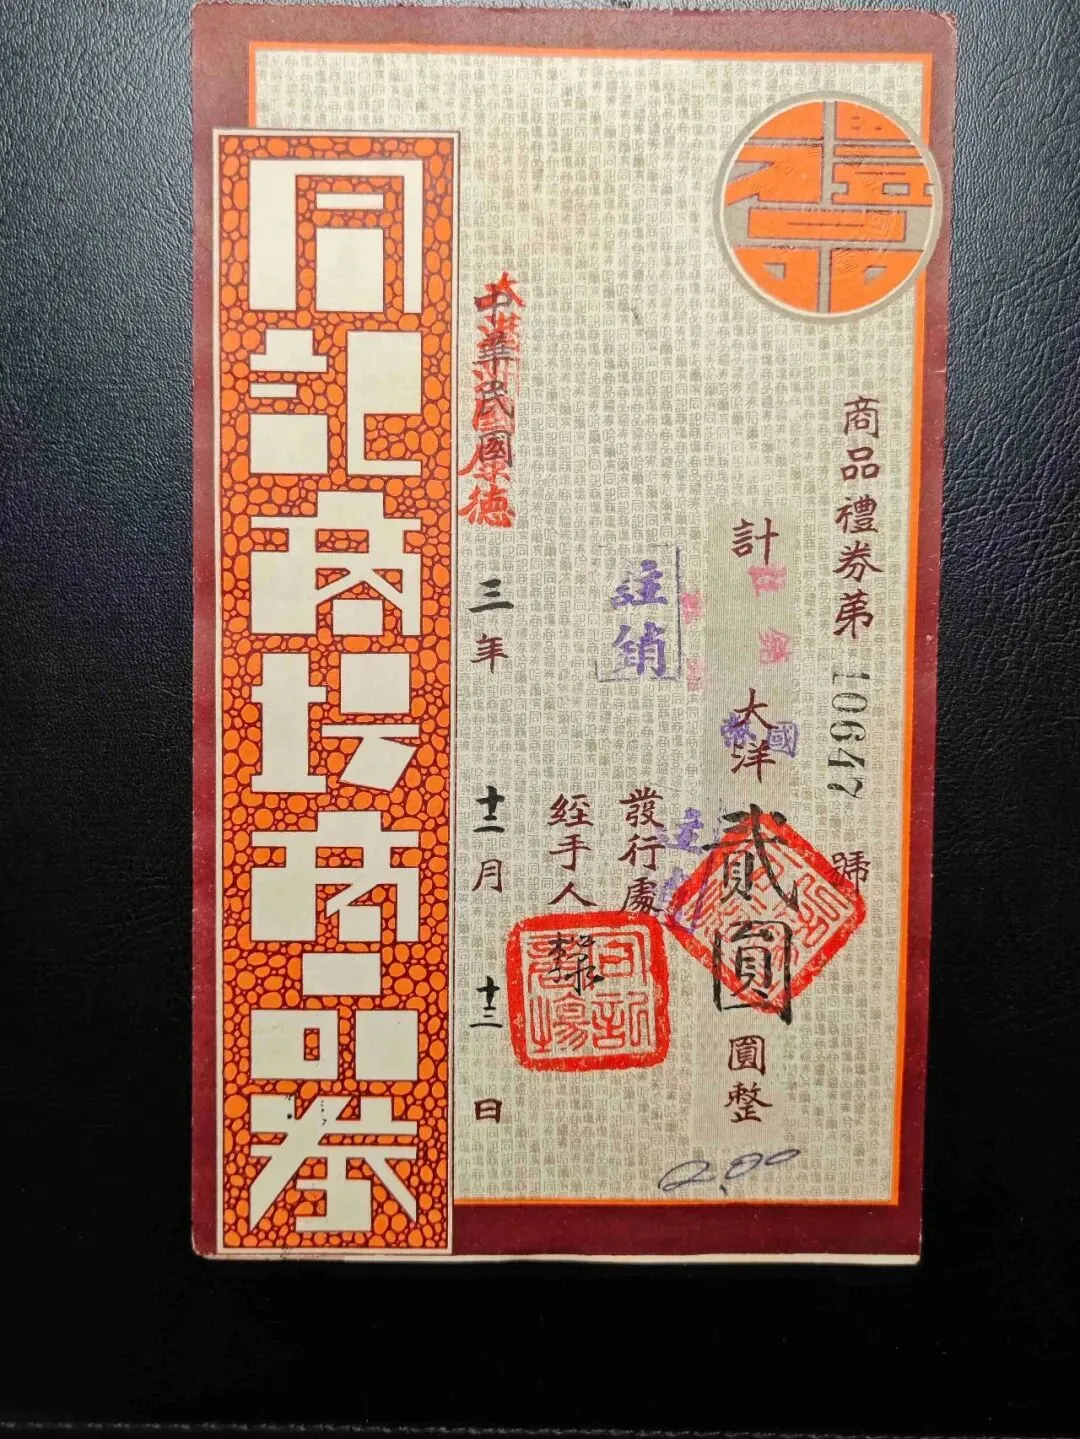 禮
商品禮券第 10947 號
計 大洋 貳圓 圓整
國幣
2.00
註銷
發行處
註銷
經手人
同記商場
中華民國
大滿洲國康德
三年 十二月 十三日
同記商場商品券